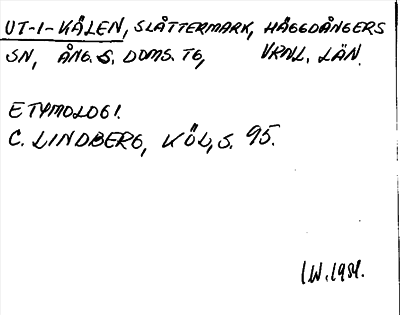 UT-I-KÅLEN, SLÅTTERMARK, HÄGGDÅNGERS
SN, ÅNG. S. DOMS. TG, VRNL. LÄN.
ETYMOLOGI.
C. LINDBERG, KÖL, S. 95.
I.W. 1981.